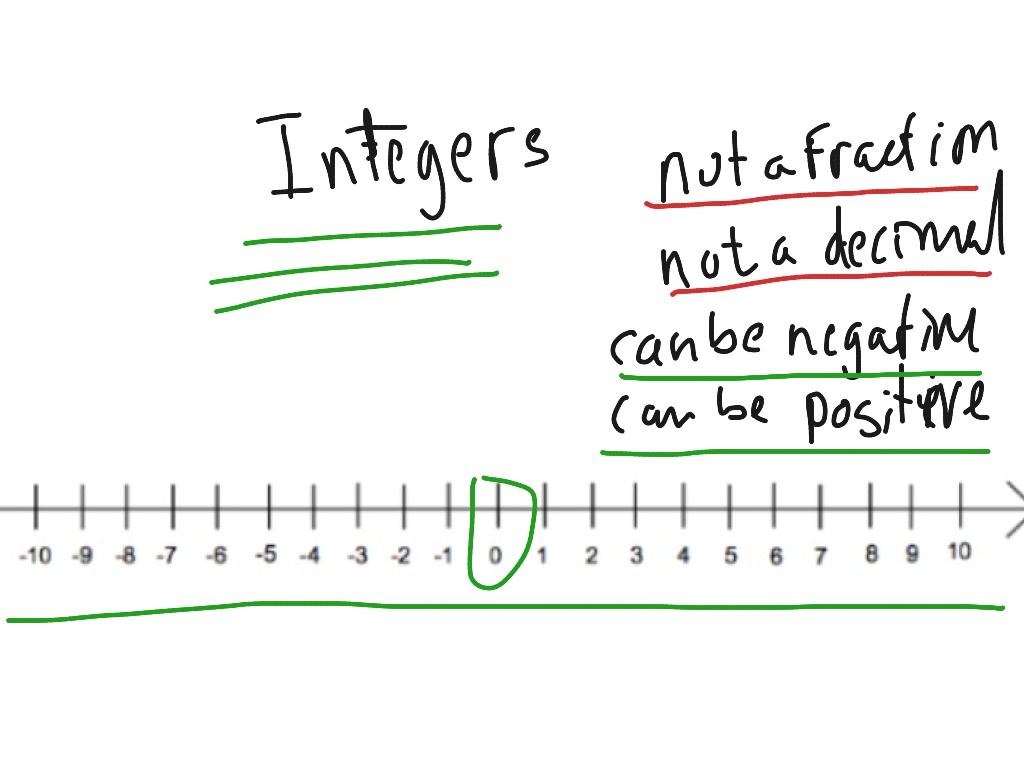 Integers
not a fraction
not a decimal
can be negative
can be positive
-10 -9 -8 -7 -6 -5 -4 -3 -2 -1 0 1 2 3 4 5 6 7 8 9 10